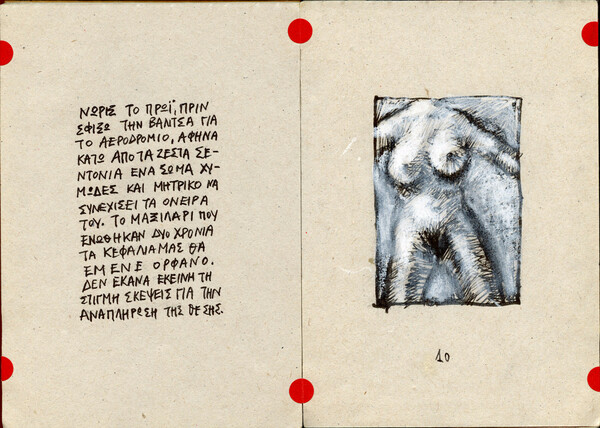 ΝΩΡΙΣ ΤΟ ΠΡΩΪ, ΠΡΙΝ
ΣΦΙΞΩ ΤΗΝ ΒΑΛΤΣΑ ΓΙΑ
ΤΟ ΑΕΡΟΔΡΟΜΙΟ, ΑΦΗΝΑ
ΚΑΤΩ ΑΠΟ ΤΑ ΖΕΣΤΑ ΣΕ-
ΝΤΟΝΙΑ ΕΝΑ ΣΩΜΑ ΧΥ-
ΜΩΔΕΣ ΚΑΙ ΜΗΤΡΙΚΟ ΝΑ
ΣΥΝΕΧΙΣΕΙ ΤΑ ΟΝΕΙΡΑ
ΤΟΥ. ΤΟ ΜΑΞΙΛΑΡΙ ΠΟΥ
ΕΝΩΘΗΚΑΝ ΔΥΟ ΧΡΟΝΙΑ
ΤΑ ΚΕΦΑΛΙΑ ΜΑΣ ΘΑ
ΕΜΕΝΕ ΟΡΦΑΝΟ.
ΔΕΝ ΕΚΑΝΑ ΕΚΕΙΝΗ ΤΗ
ΣΤΙΓΜΗ ΣΚΕΨΕΙΣ ΓΙΑ ΤΗΝ
ΑΝΑΠΛΗΡΩΣΗ ΤΗΣ ΘΕΣΗΣ.
10